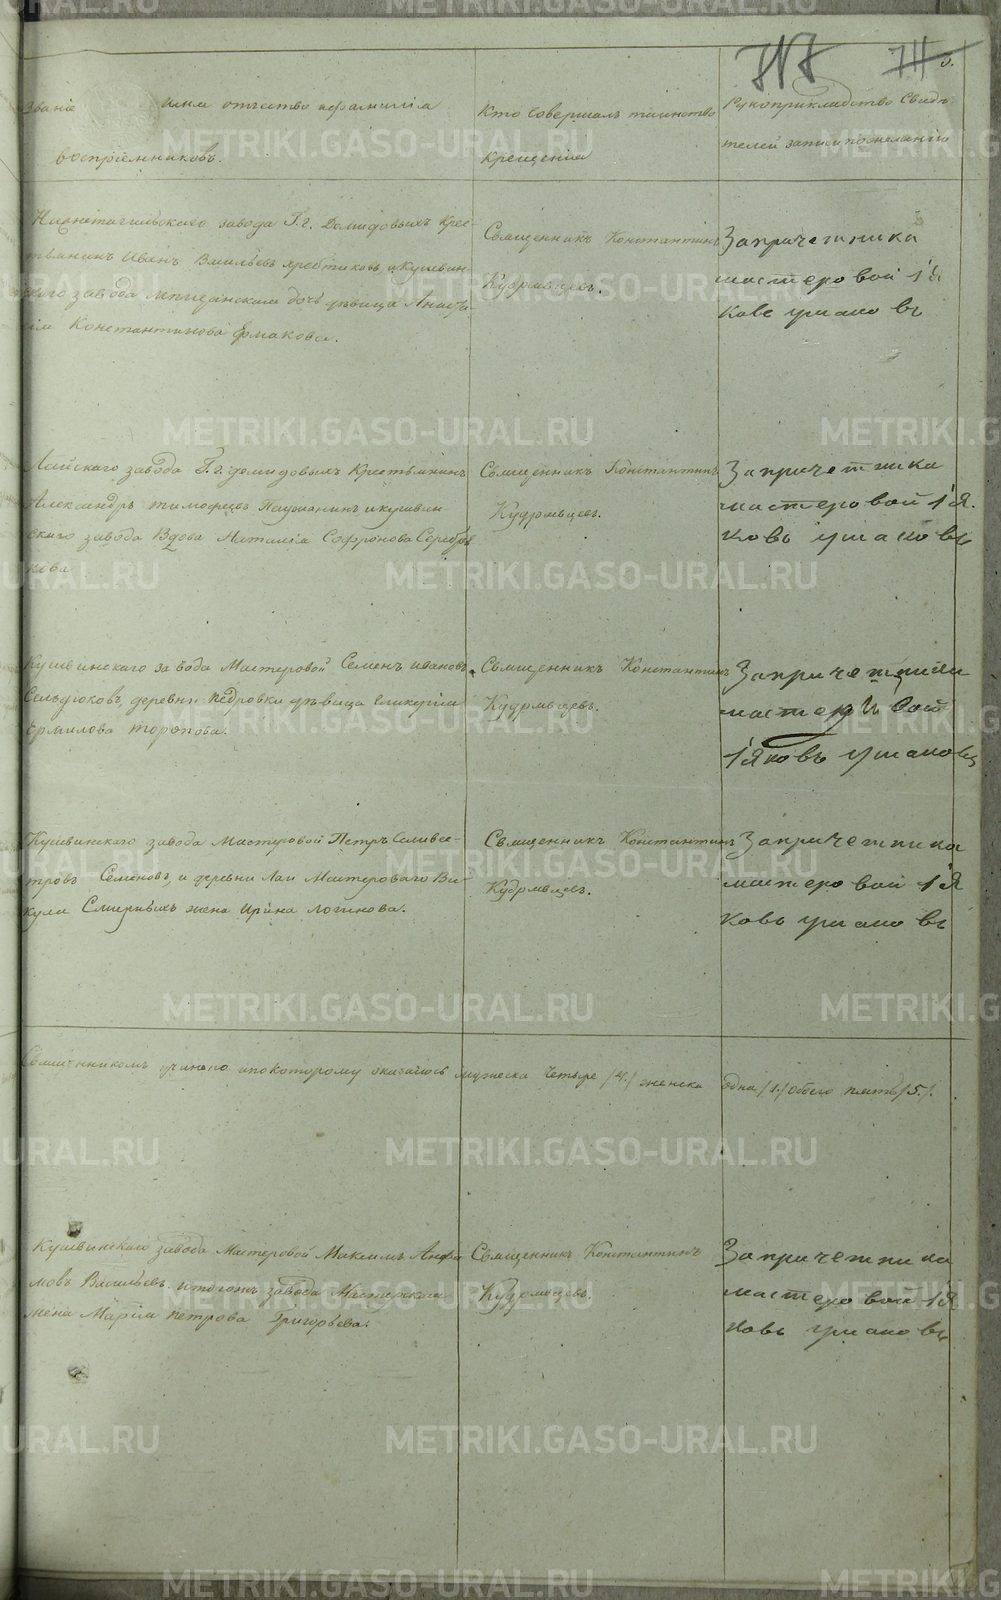 Званіе имя отчество и фамилія
воспріемниковъ.
Кто совершалъ таинство
крещенія
Рукоприкладство свидѣ-
телей записи по желанію
Нижнетагильскаго завода Г.г. Демидовыхъ крес-
тьянинъ Иванъ Васильевъ и Кушвин-
скаго завода дочь дѣвица
Константинова Ермакова.
Священникъ Константинъ
Кудрявцевъ.
За причетника
мастеровой 1Я
ковъ ушаковъ
Лайскаго завода Г.г. Демидовыхъ Крестьянинъ
Александръ Тимофеевъ и кушвин
скаго завода Вдова Наталія Софронова Серебря
кова
Священникъ Константинъ
Кудрявцевъ.
За причетника
мастеровой 1Я.
ковъ ушаковъ
Кушвинскаго завода Мастеровой Семенъ Ивановъ
Сельдюковъ, деревни дѣвица Гликерія
Ермилова Торопова.
Священникъ Константинъ
Кудрявцевъ.
За причетника
мастеровой
1Яковъ ушаковъ
Кушвинскаго завода Мастеровой Петръ Селивес-
тровъ Семеновъ, и деревни Лаи Мастероваго Ви-
кула Смирныхъ жена Ирина Логинова.
Священникъ Константинъ
Кудрявцевъ.
За причетника
мастеровой 1Я
ковъ ушаковъ
Священникомъ учинено и по которому оказалось мужеска четыре /4./ женска одна /1./ обоего пять /5./.
Кушвинскаго завода Мастеровой Максимъ
мовъ Васильевъ и тогожъ завода Мастерская
жена Марія Петрова Григорьева.
Священникъ Константинъ
Кудрявцевъ.
За причетника
мастеровой 1Я
ковъ ушаковъ
METRIKI.GASO-URAL.RU